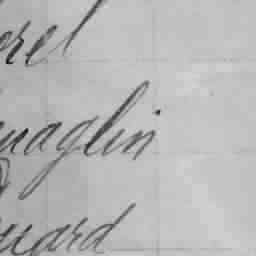 orel
uaglin
uard